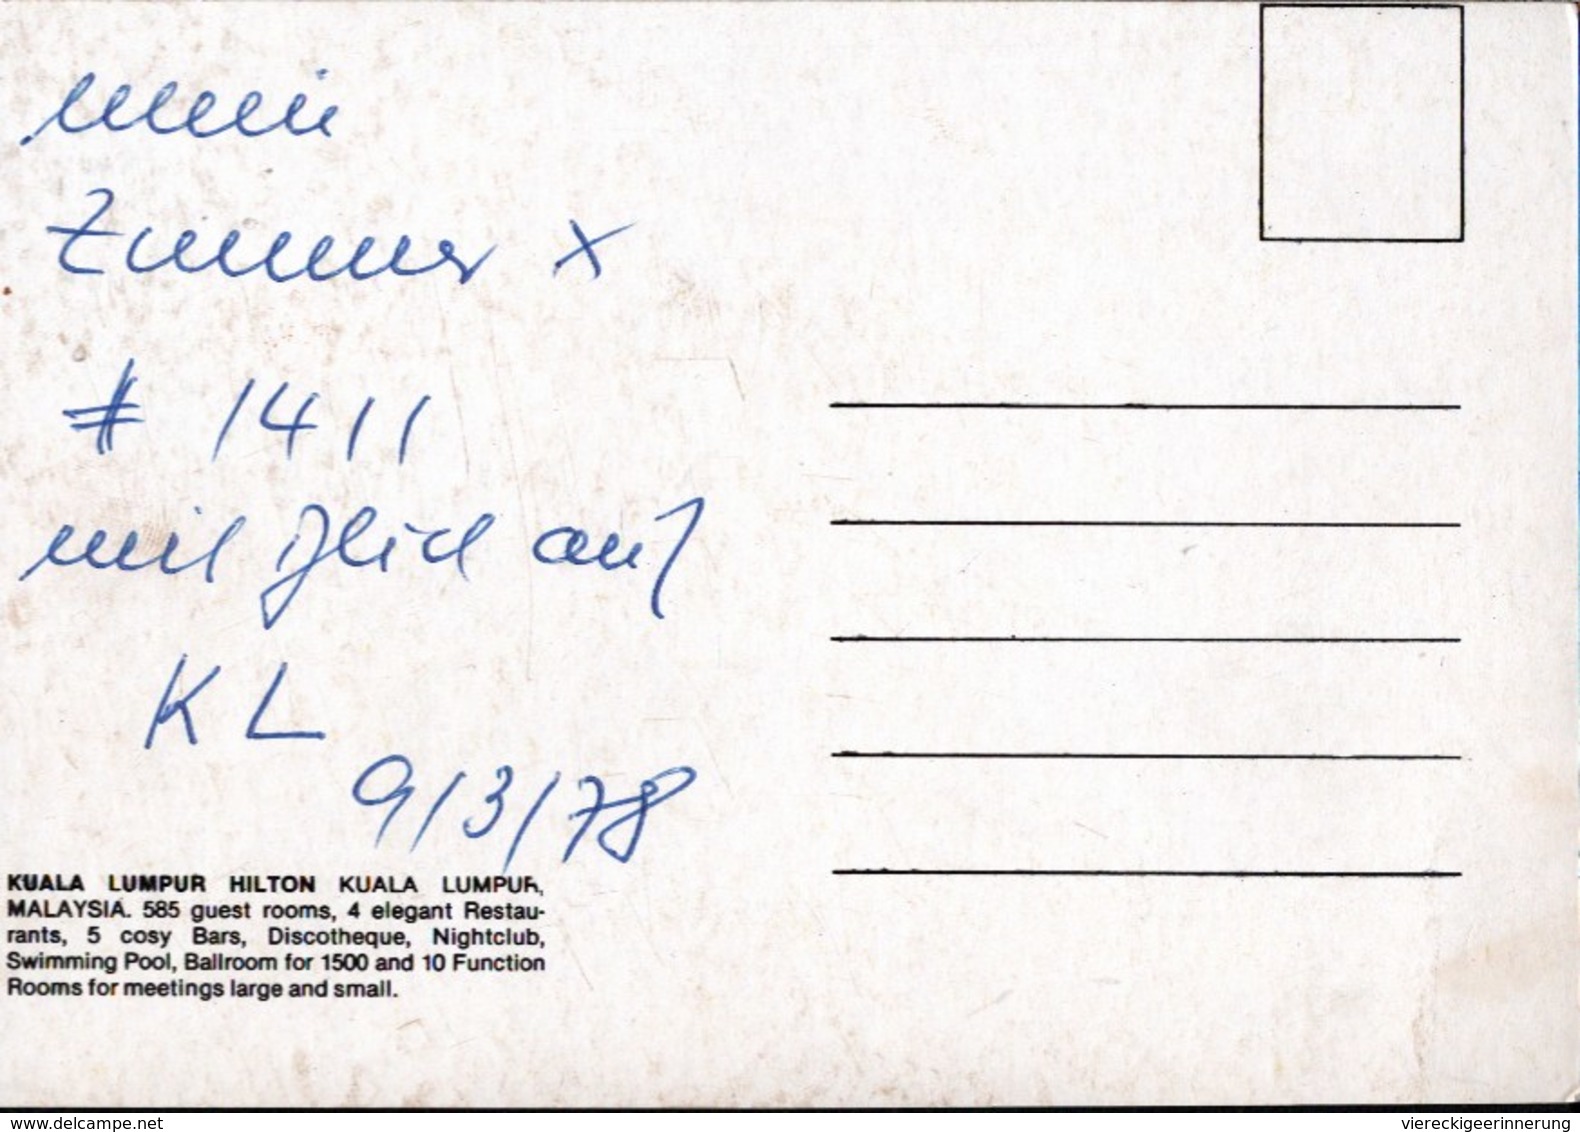 mein
Zimmer x
# 1411
mit Blick auf
KL
9/3/78
KUALA LUMPUR HILTON KUALA LUMPUR,
MALAYSIA. 585 guest rooms, 4 elegant Restau-
rants, 5 cosy Bars, Discotheque, Nightclub,
Swimming Pool, Ballroom for 1500 and 10 Function
Rooms for meetings large and small.
delcampe.net
viereckigeerinnerung